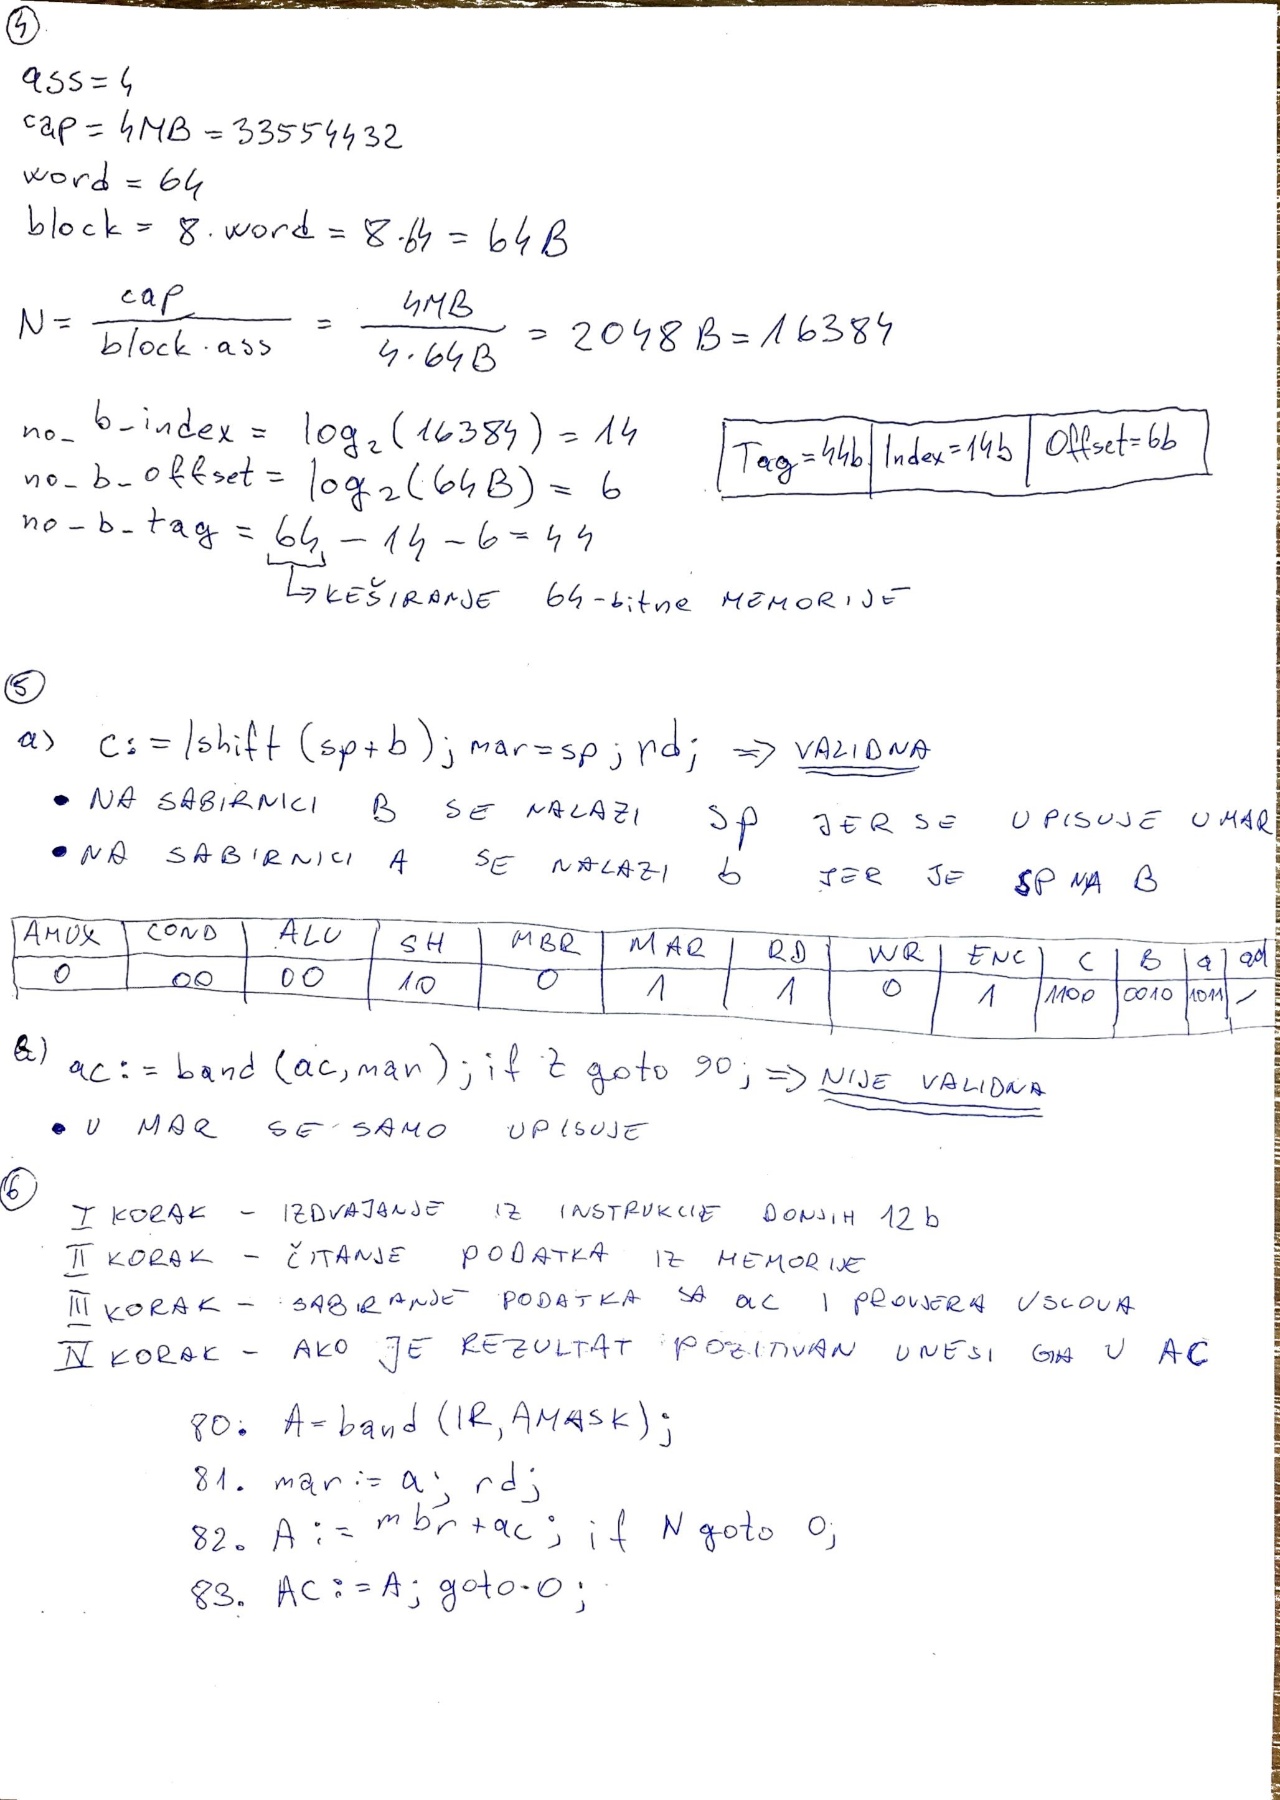 4
ass = 4
cap = 4MB = 33554432
word = 64
block = 8 · word = 8 · 64 = 64B
N = cap / block · ass = 4MB / 4 · 64B = 2048 B = 16384
no_b_index = log₂(16384) = 14
no_b_offset = log₂(64B) = 6
no_b_tag = 64 - 14 - 6 = 44
Tag = 44b | Index = 14b | Offset = 6b
↳ KEŠIRANJE 64-bitne MEMORIJE
5
a) c := lshift (sp + b); mar = sp; rd; => VALIDNA
• NA SABIRNICI B SE NALAZI sp JER SE UPISUJE U MAR
• NA SABIRNICI A SE NALAZI b JER JE SP NA B
AMUX | COND | ALU | SH | MBR | MAR | RD | WR | ENC | C | B | a | ad
0 | 00 | 00 | 10 | 0 | 1 | 1 | 0 | 1 | 1100 | 0010 | 1011 | /
b) ac := band (ac, mar); if Z goto 90; => NIJE VALIDNA
• U MAR SE SAMO UPISUJE
6
I KORAK - IZDVAJANJE IZ INSTRUKCIJE DONJIH 12 b
II KORAK - ČITANJE PODATKA IZ MEMORIJE
III KORAK - SABIRANJE PODATKA SA ac I PROVJERA USLOVA
IV KORAK - AKO JE REZULTAT POZITIVAN UNESI GA U AC
80. A = band (IR, AMASK);
81. mar := a; rd;
82. A := mbr + ac; if N goto 0;
83. AC := A; goto 0;